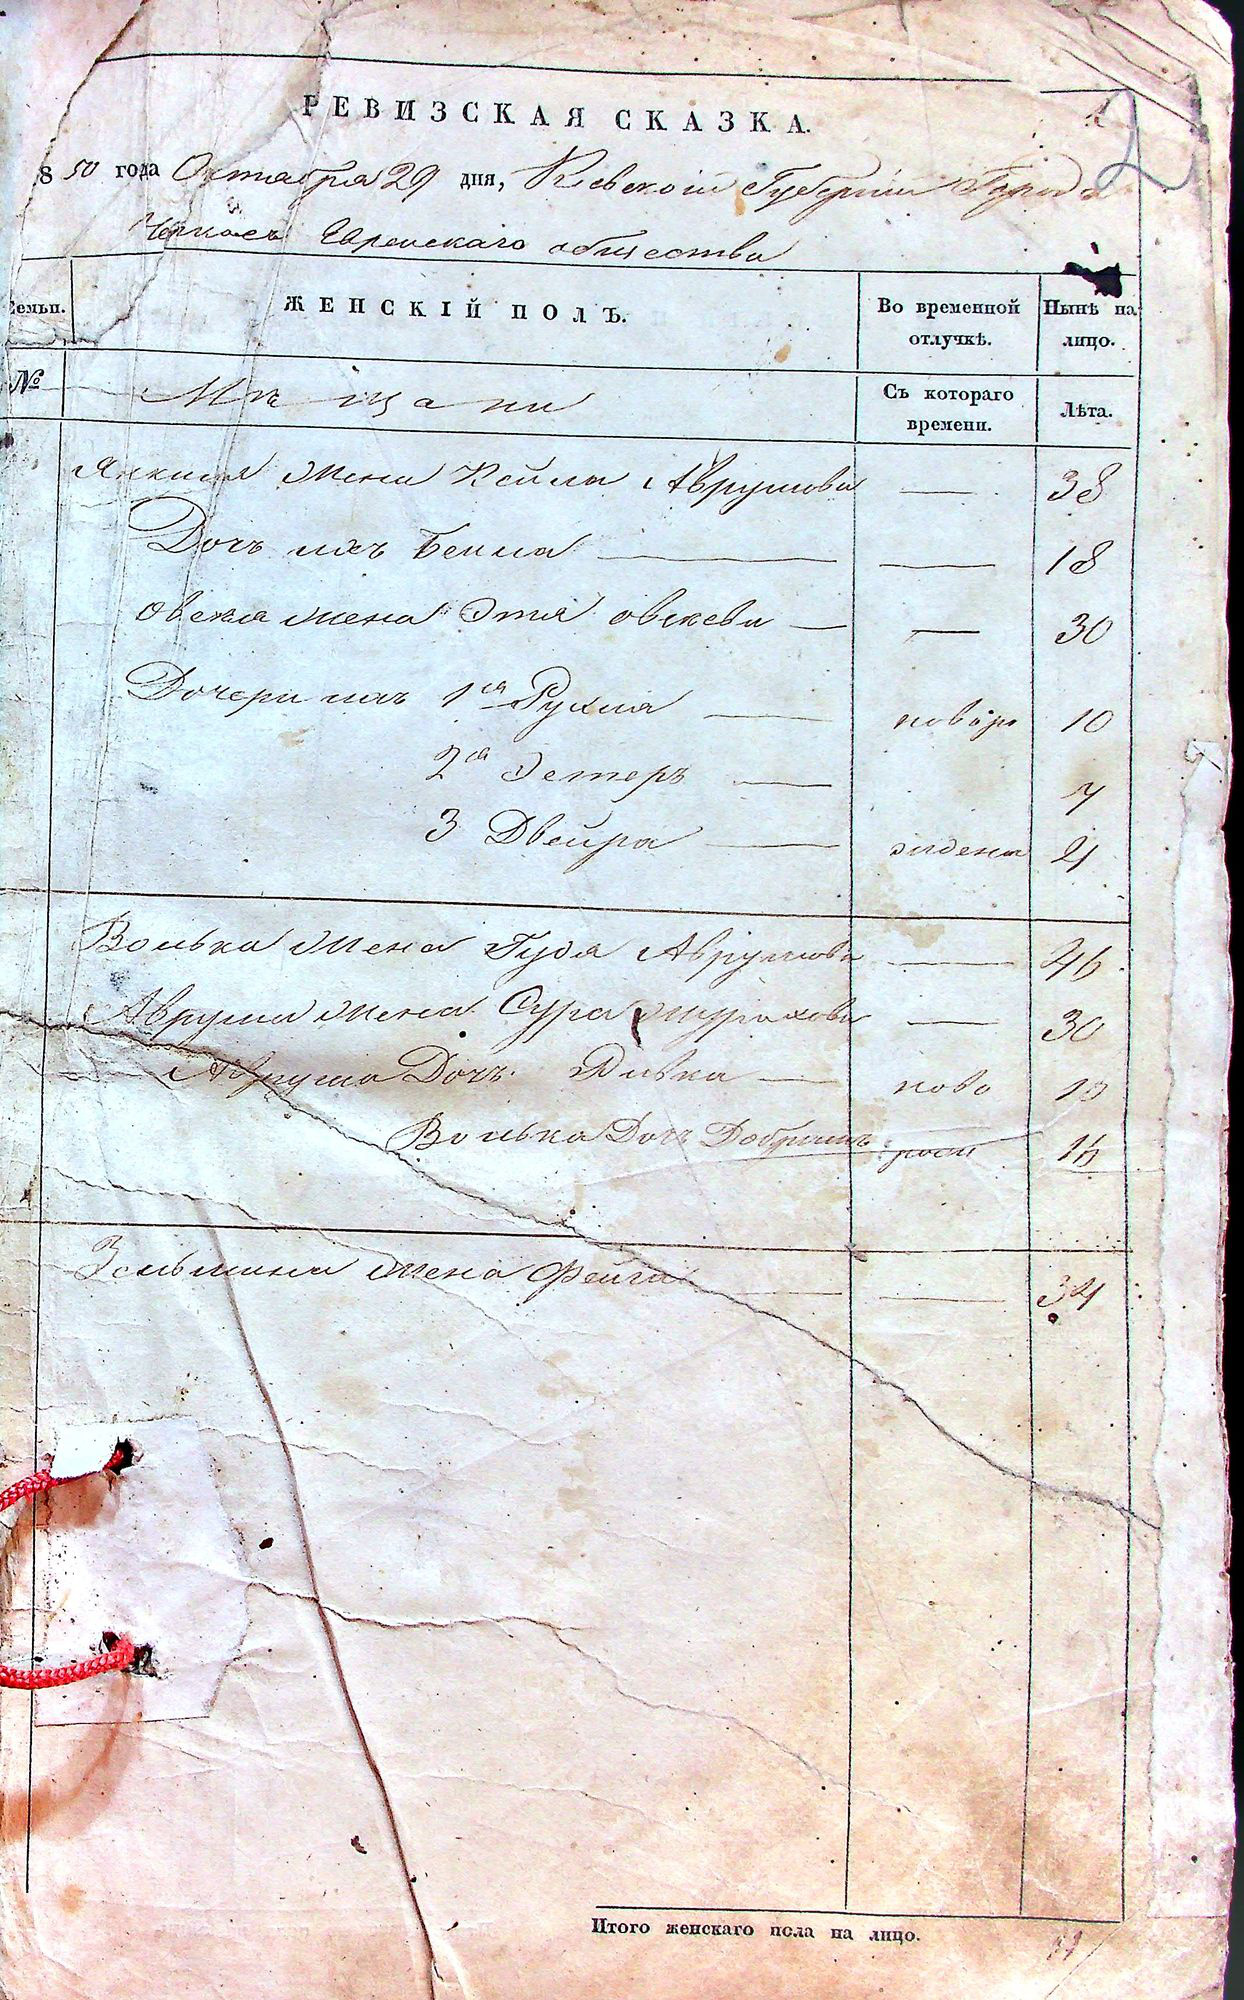 РЕВИЗСКАЯ СКАЗКА.
8 50 года Октября 29 дня, Киевской Губернии Города
Черкасъ Еврейскаго общества
Семьи. ЖЕНСКІЙ ПОЛЪ. Во временной отлучкѣ. Нынѣ на лицо.
№ Мѣщане Съ котораго времени. Лѣта.
Янкеля жена Кейла Аврумова — 38
Дочь ихъ Бейла — — 18
Овсея жена Этя — — 30
Дочери ихъ 1я Рухля — 10
2я Эстеръ — 7
3 Двейра — 4
Волька жена Гудя Аврумова — 46
Аврума жена Сура — 30
Аврума Дочь Ривка — ново 10
Волька Дочь 16
Зельмана жена Фейга — — 34
Итого женскаго пола на лицо. 11